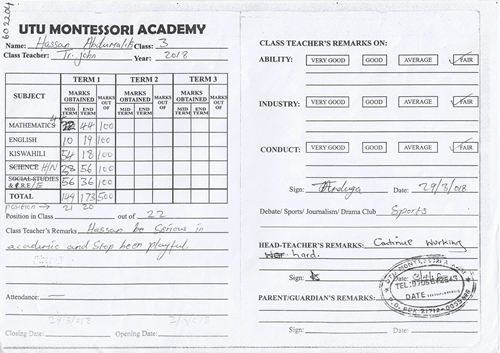 602204
UTU MONTESSORI ACADEMY
Name: Hassan Abdumalik Class: 3
Class Teacher: Tr. John Year: 2018
TERM 1 TERM 2 TERM 3
SUBJECT MARKS OBTAINED MARKS OUT OF MARKS OBTAINED MARKS OUT OF MARKS OBTAINED MARKS OUT OF
MID TERM END TERM MID TERM END TERM MID TERM END TERM
MATHEMATICS 44 100
ENGLISH 10 19 100
KISWAHILI 54 18 100
SCIENCE H/N 28 56 100
SOCIAL STUDIES & C.R.E/E 56 36 100
TOTAL 149 173 500
POSITION → 21 20
Position in Class out of 22
Class Teacher's Remarks Hassan be serious in
academic and stop been playful.
Attendance: —
Closing Date: Opening Date:
CLASS TEACHER'S REMARKS ON:
ABILITY: VERY GOOD GOOD AVERAGE FAIR
INDUSTRY: VERY GOOD GOOD AVERAGE FAIR
CONDUCT: VERY GOOD GOOD AVERAGE FAIR
Sign: Date: 29/3/018
Debate/ Sports/ Journalism/ Drama Club Sports
HEAD-TEACHER'S REMARKS: Continue working
hard.
Sign:
UTU MONTESSORI
TEL:
DATE
P.O. BOX
PARENT/GUARDIAN'S REMARKS:
Sign: Date: